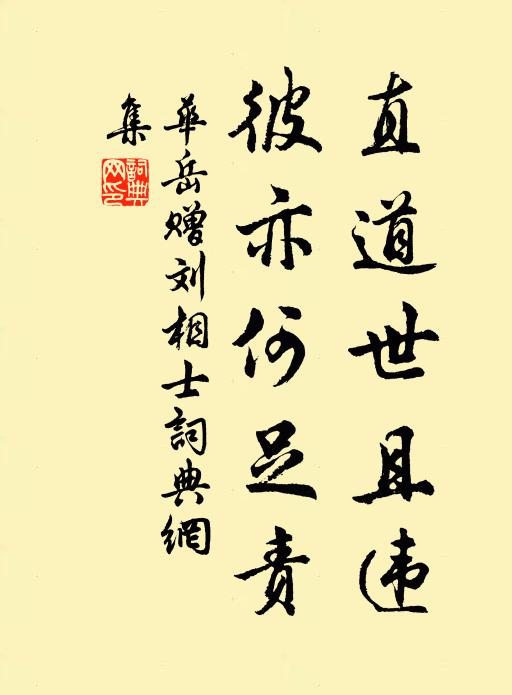 直道世且违
彼亦何足责
華岳赠刘相士詞典網
集
詞典
网印